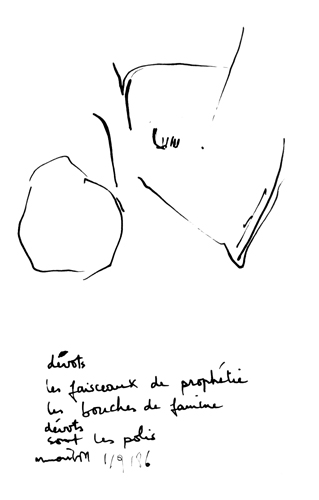 dévots
les faisceaux de prophétie
les bouches de famine
dévots
sont les polis
1/9/96